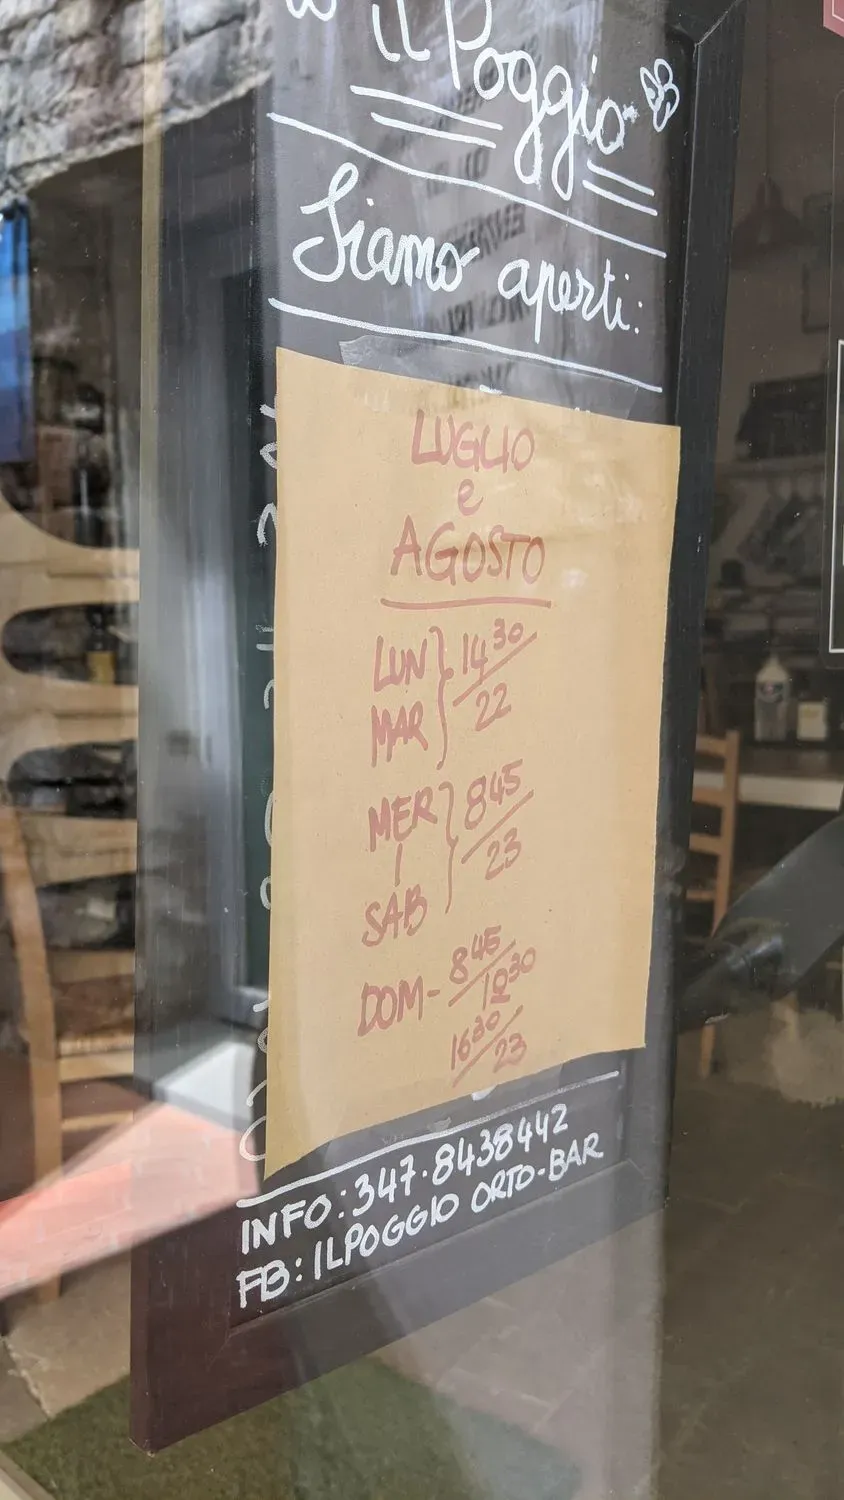 il Poggio
Siamo aperti:
LUGLIO
e
AGOSTO
LUN
MAR
14 30
22
MER
SAB
8 45
23
DOM - 8 45
16 30
23
INFO: 347.8438442
FB: ILPOGGIO ORTO-BAR